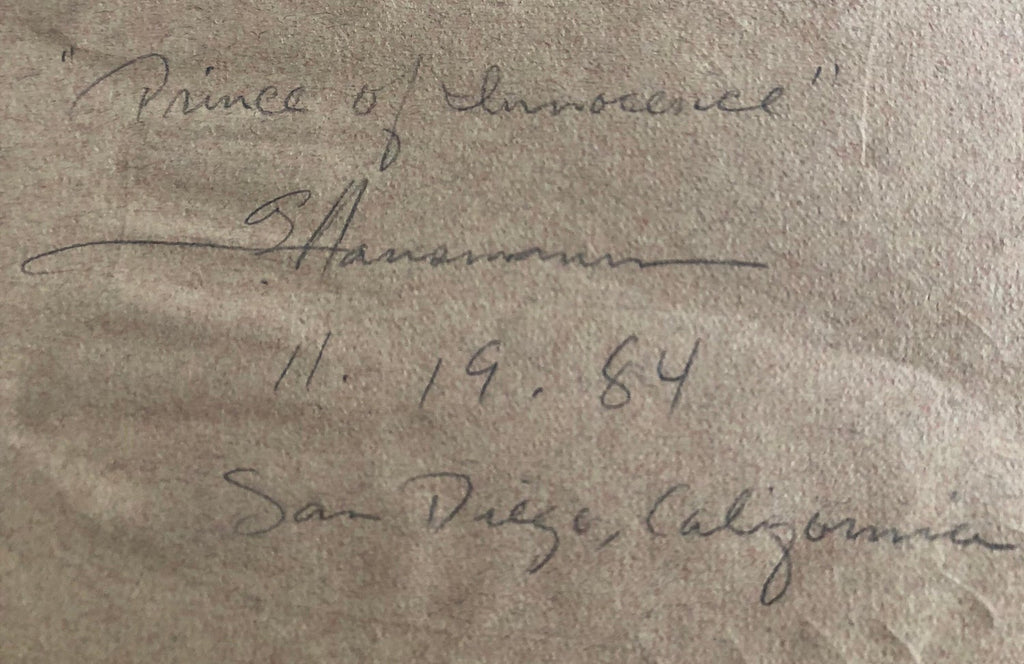 "Prince of Innocence"
S Hausmann
11. 19. 84
San Diego, California